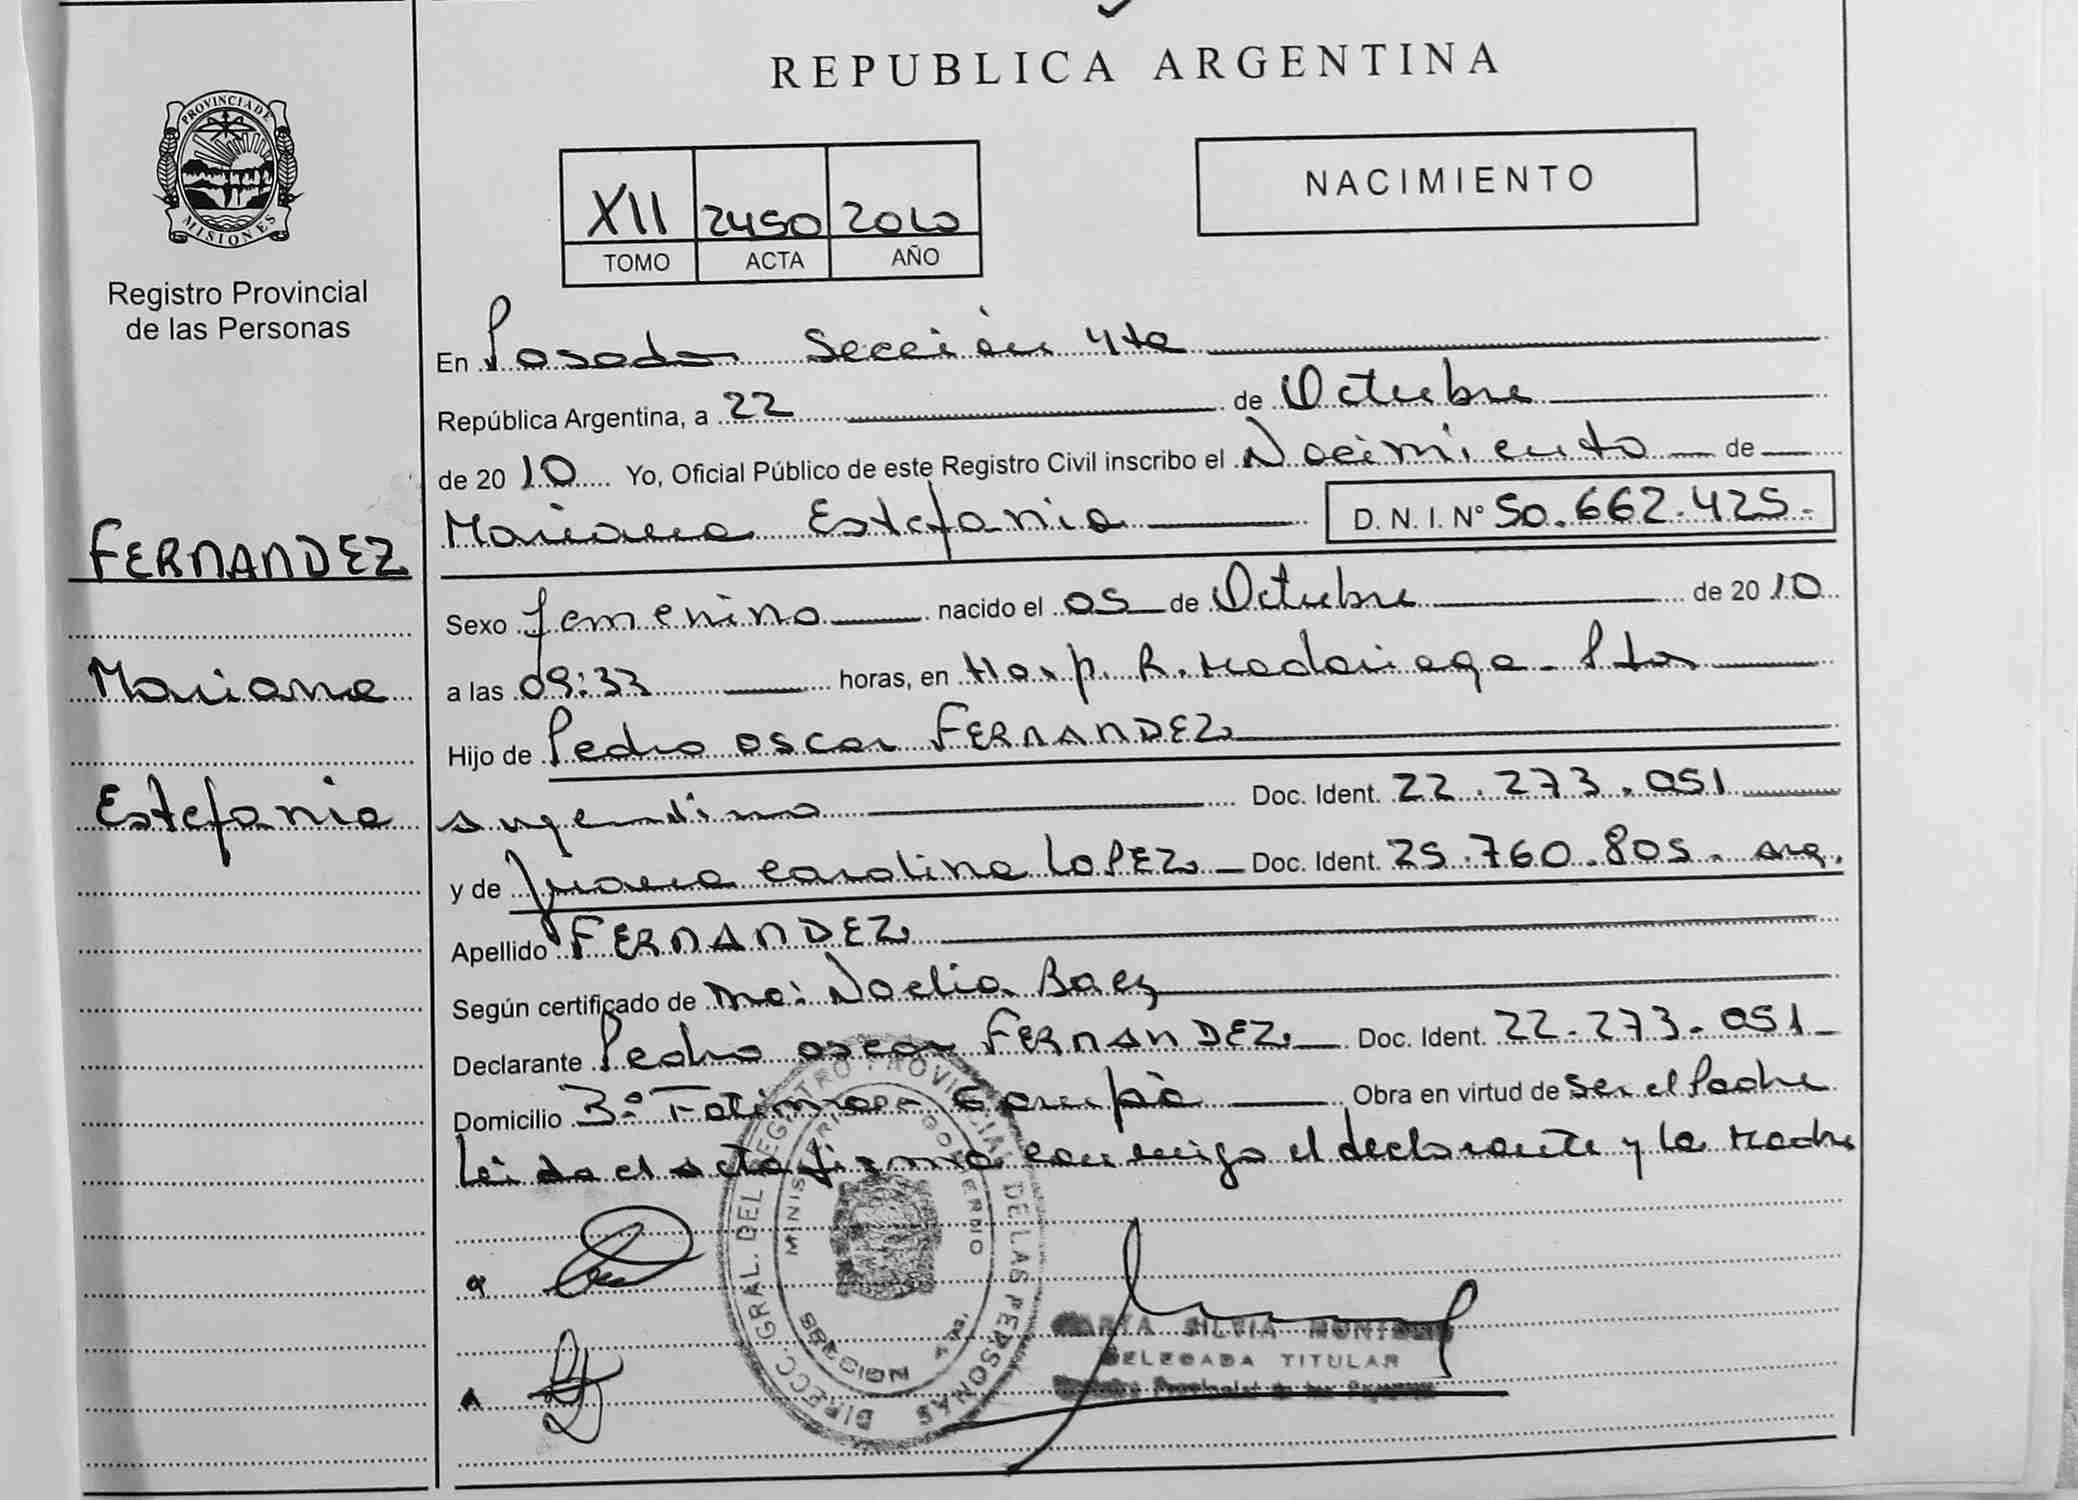 REPUBLICA ARGENTINA
PROVINCIA DE
MISIONES
Registro Provincial
de las Personas
NACIMIENTO
XII 2450 2010
TOMO ACTA AÑO
En Posadas Sección 4ta
República Argentina, a 22 de Octubre
de 2010 Yo, Oficial Público de este Registro Civil inscribo el Nacimiento de
Mariana Estefania D.N.I. Nº 50.662.425.
FERNANDEZ
Mariana
Estefania
Sexo femenino nacido el 05 de Octubre de 2010
a las 09:33 horas, en Hosp. R. Madariaga - Pdas
Hijo de Pedro Oscar FERNANDEZ
argentino Doc. Ident. 22.273.051
y de Juana Carolina LOPEZ Doc. Ident. 25.760.805. arg.
Apellido FERNANDEZ
Según certificado de Noelia Baez
Declarante Pedro Oscar FERNANDEZ. Doc. Ident. 22.273.051
Domicilio Bº Fatima Garupá Obra en virtud de ser el Padre
Leida el acta firma conmigo el declarante y la Madre
DIRECC. GRAL. DEL REGISTRO PROVINCIAL DE LAS PERSONAS
MINISTERIO GOBIERNO
MISIONES
SILVIA
DELEGADA TITULAR
Registro Provincial de las Personas